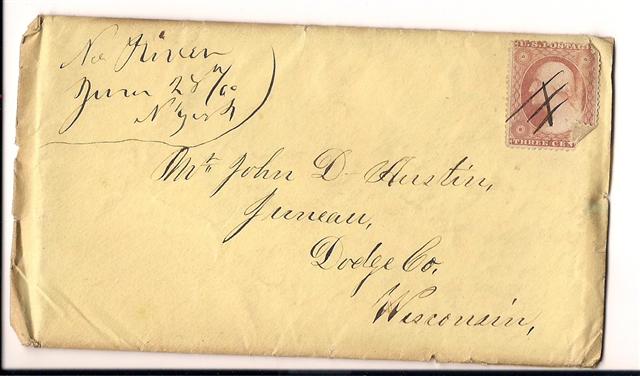 No River
June 28th/60
N York
U.S. POSTAGE
THREE CEN
Mr. John D. Austin,
Juneau,
Dodge Co.
Wisconsin,